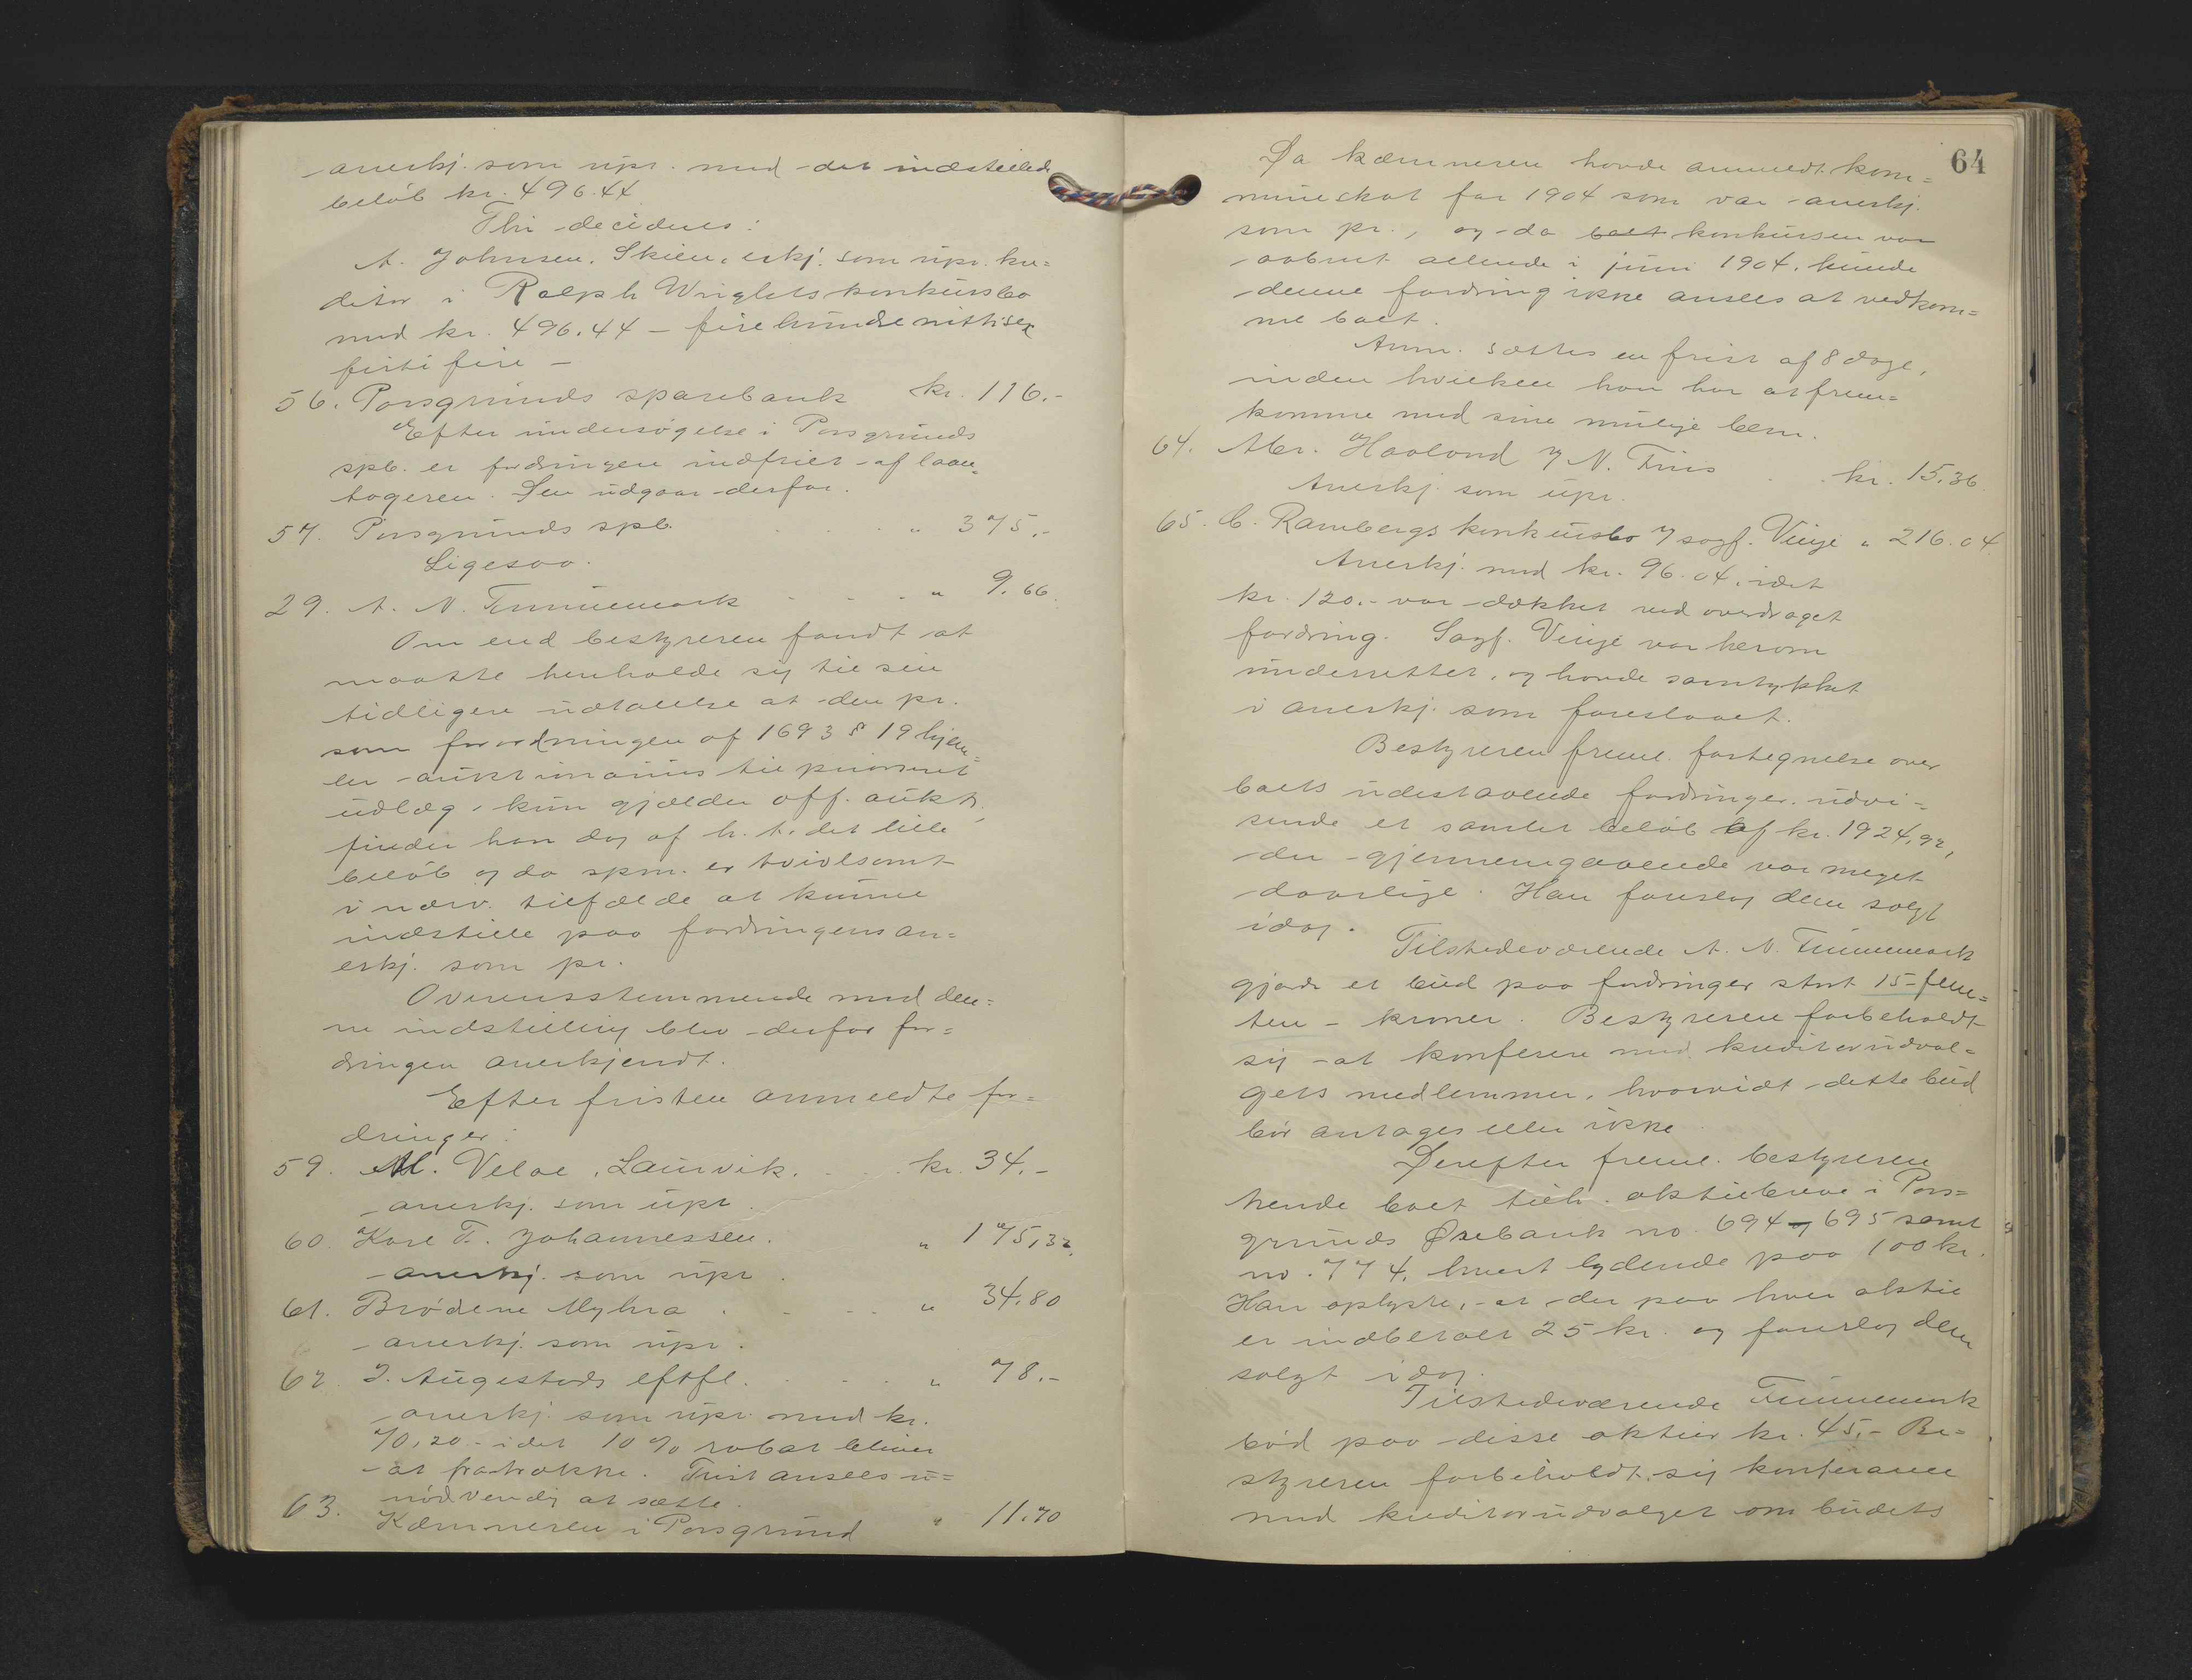 anerkj. som upr. med det indstillede
beløb kr. 496.44
Thi decideres:
A. Johnsen, Skien, erkj. som upr. kre=
ditor i Ralph Wrights konkursbo
med kr. 496.44 – firehundrenittisex
firti fire –
56. Porsgrunds sparebank kr. 116.-
Efter undersøgelse i Porsgrunds
spb. er fordringen indfriet af laan=
tageren. Den udgaar derfor.
57. Porsgrunds spb. . . . " 375.-
Ligesaa.
29. A. N. Tennemark . . . " 9.66.
Om end bestyreren fandt at
maatte henholde sig til sin
tidligere udtalelse at den pr.
som forordningen af 1693 § 19 hjem=
ler auktionarius til prioriret
udlæg, kun gjælder off. aukt.,
finder han dog af h. t. det lille
beløb og da spm. er tvivlsomt
i nærv. tilfælde at kunne
indstille paa fordringens an=
erkj. som pr.
Overensstemmende med den=
ne indstilling blev derfor for=
dringen anerkjendt.
Efter fristen anmeldte for=
dringer:
59. M. Veloe, Laurvik. . . . kr. 34.-
anerkj. som upr.
60. Karl F. Johannessen. " 175,32.
anerkj. som upr.
61. Brødene Myhra . . . . " 34.80
anerkj. som upr.
62. J. Augestads eftfl. . . . " 78.-
anerkj. som upr. med kr.
70,20 - idet 10 % rabat bliver
at fratrække. Frist ansees u=
nødvendig at sætte.
63. Kæmneren i Porsgrund " 11.70
64
Da kæmneren havde anmeldt kom=
muneskat for 1904 som var anerkj.
som pr., og da boet konkursen var
aabnet allerede i juni 1904, kunde
denne fordring ikke ansees at vedkom=
me boet.
Anm. sættes en frist af 8 dage,
inden hvilken han har at frem=
komme med sine mulige bem.
64. Abr. Haaland v/ N. Friis . . kr. 15.36.
Anerkj. som upr.
65. C. Rambergs konkursbo v/ sagf. Vinje " 216.04.
Anerkj. med kr. 96.04, idet
kr. 120.- var dækket ved overdraget
fordring. Sagf. Vinje var herom
underrettet, og havde samtykket
i anerkj. som foreslaaet.
Bestyreren freml. fortegnelse over
boets udestaaende fordringer, udvi=
sende et samlet beløb af kr. 1924,92,
der gjennemgaaende var meget
daarlige. Han foreslog dem solgt
idag.
Tilstedeværende A. N. Tennemark
gjorde et bud paa fordringer stort 15 - fem=
ten - kroner. Bestyreren forbeholdt
sig at konferere med kreditorudval=
gets medlemmer, hvorvidt dette bud
bør antages eller ikke.
Derefter freml. bestyreren
trende boet tilh. aktiebreve i Pors=
grunds Ørebank no. 694 og 695 samt
no. 774, hvert lydende paa 100 kr.
Han oplyste, at der paa hver aktie
er indbetalt 25 kr. og foreslog dem
solgt idag.
Tilstedeværende Tennemark
bød paa disse aktier kr. 45.- Be=
styreren forbeholdt sig konferance
med kreditorudvalget om budets